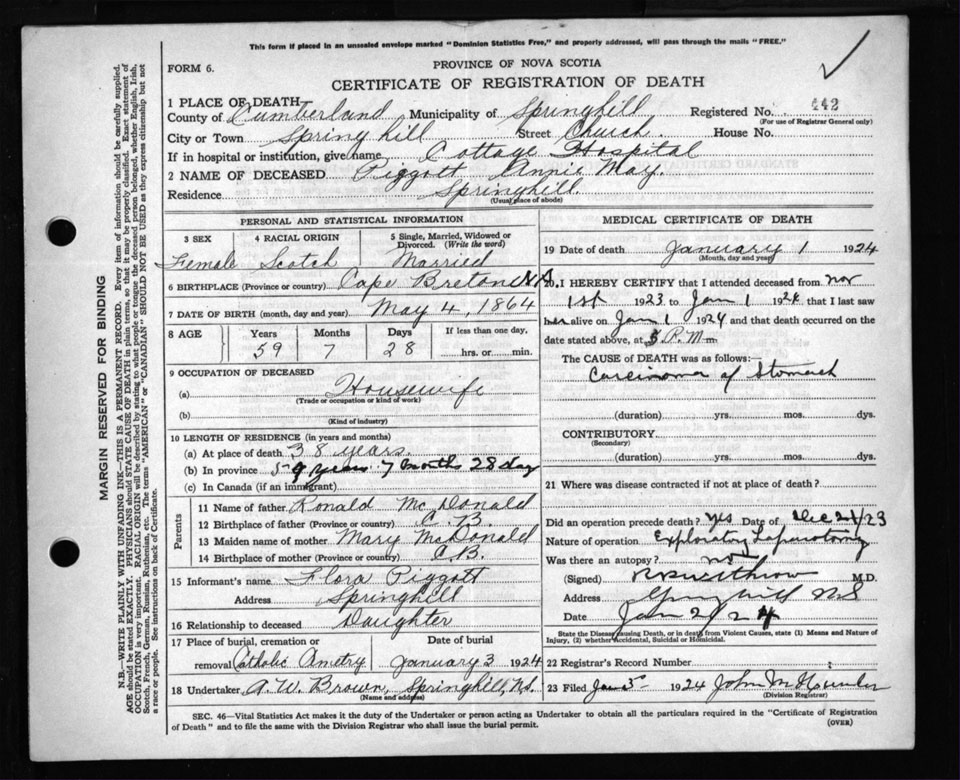 This form if placed in an unsealed envelope marked "Dominion Statistics Free," and properly addressed, will pass through the mails "FREE."
FORM 6.
PROVINCE OF NOVA SCOTIA
CERTIFICATE OF REGISTRATION OF DEATH
1 PLACE OF DEATH
County of Cumberland Municipality of Springhill Registered No. 442
(For use of Registrar General only)
City or Town Springhill Street Church. House No.
If in hospital or institution, give name Cottage Hospital
2 NAME OF DECEASED Piggott Annie May.
Residence Springhill.
(Usual place of abode)
PERSONAL AND STATISTICAL INFORMATION
3 SEX 4 RACIAL ORIGIN 5 Single, Married, Widowed or Divorced. (Write the word)
Female Scotch Married
6 BIRTHPLACE (Province or country) Cape Breton N.S.
7 DATE OF BIRTH (month, day, and year) May 4, 1864
8 AGE Years Months Days If less than one day,
59 7 28 hrs. or min.
9 OCCUPATION OF DECEASED
(a) Housewife
(Trade or occupation or kind of work)
(b)
(Kind of industry)
10 LENGTH OF RESIDENCE (in years and months)
(a) At place of death 38 years.
(b) In province 59 years 7 months 28 day
(c) In Canada (if an immigrant)
Parents
11 Name of father Ronald McDonald
12 Birthplace of father (Province or country) C.B.
13 Maiden name of mother Mary McDonald
14 Birthplace of mother (Province or country) C.B.
15 Informant's name Flora Piggott
Address Springhill
16 Relationship to deceased Daughter
17 Place of burial, cremation or Date of burial
removal Catholic January 3 1924
18 Undertaker A. W. Brown, Springhill, N.S.
(Name and address)
MEDICAL CERTIFICATE OF DEATH
19 Date of death January 1 1924
(Month, day and year)
20 I HEREBY CERTIFY that I attended deceased from Nov
1st 1923 to Jan 1 1924 that I last saw
her alive on Jan 1 1924 and that death occurred on
date stated above, at 5 P.M. m
The CAUSE OF DEATH was as follows:
Carcinoma of Stomach
(duration) yrs. mos. dys.
CONTRIBUTORY
(Secondary)
(duration) yrs. mos. dys.
21 Where was disease contracted if not at place of death?
Did an operation precede death? Yes Date of Dec 23
Nature of operation Exploratory Laparotomy
Was there an autopsy? no
(Signed) M.D.
Address Springhill NS
Date Jan 2/24
State the Disease causing Death, or in death from Violent Causes, state (1) Means and Nature of
Injury, (2) whether Accidental, Suicidal or Homicidal.
22 Registrar's Record Number
23 Filed Jan 1924 John
(Division Registrar)
SEC. 46—Vital Statistics Act makes it the duty of the Undertaker or person acting as Undertaker to obtain all the particulars required in the "Certificate of Registration
of Death" and to file the same with the Division Registrar who shall issue the burial permit. (OVER)
MARGIN RESERVED FOR BINDING
N.B.—WRITE PLAINLY WITH UNFADING INK—THIS IS A PERMANENT RECORD. Every item of information should be carefully supplied.
AGE should be stated EXACTLY. PHYSICIANS should STATE CAUSE OF DEATH in plain terms, so that it may be properly classified. Exact statement of
OCCUPATION is very important. RACIAL ORIGIN will be described by stating to what people or tongue the deceased person belonged, whether English, Irish,
Scotch, French, German, Russian, Ruthenian, etc. The terms "AMERICAN" or "CANADIAN" SHOULD NOT BE USED as they express citizenship but not
a race or people. See instructions on back of Certificate.